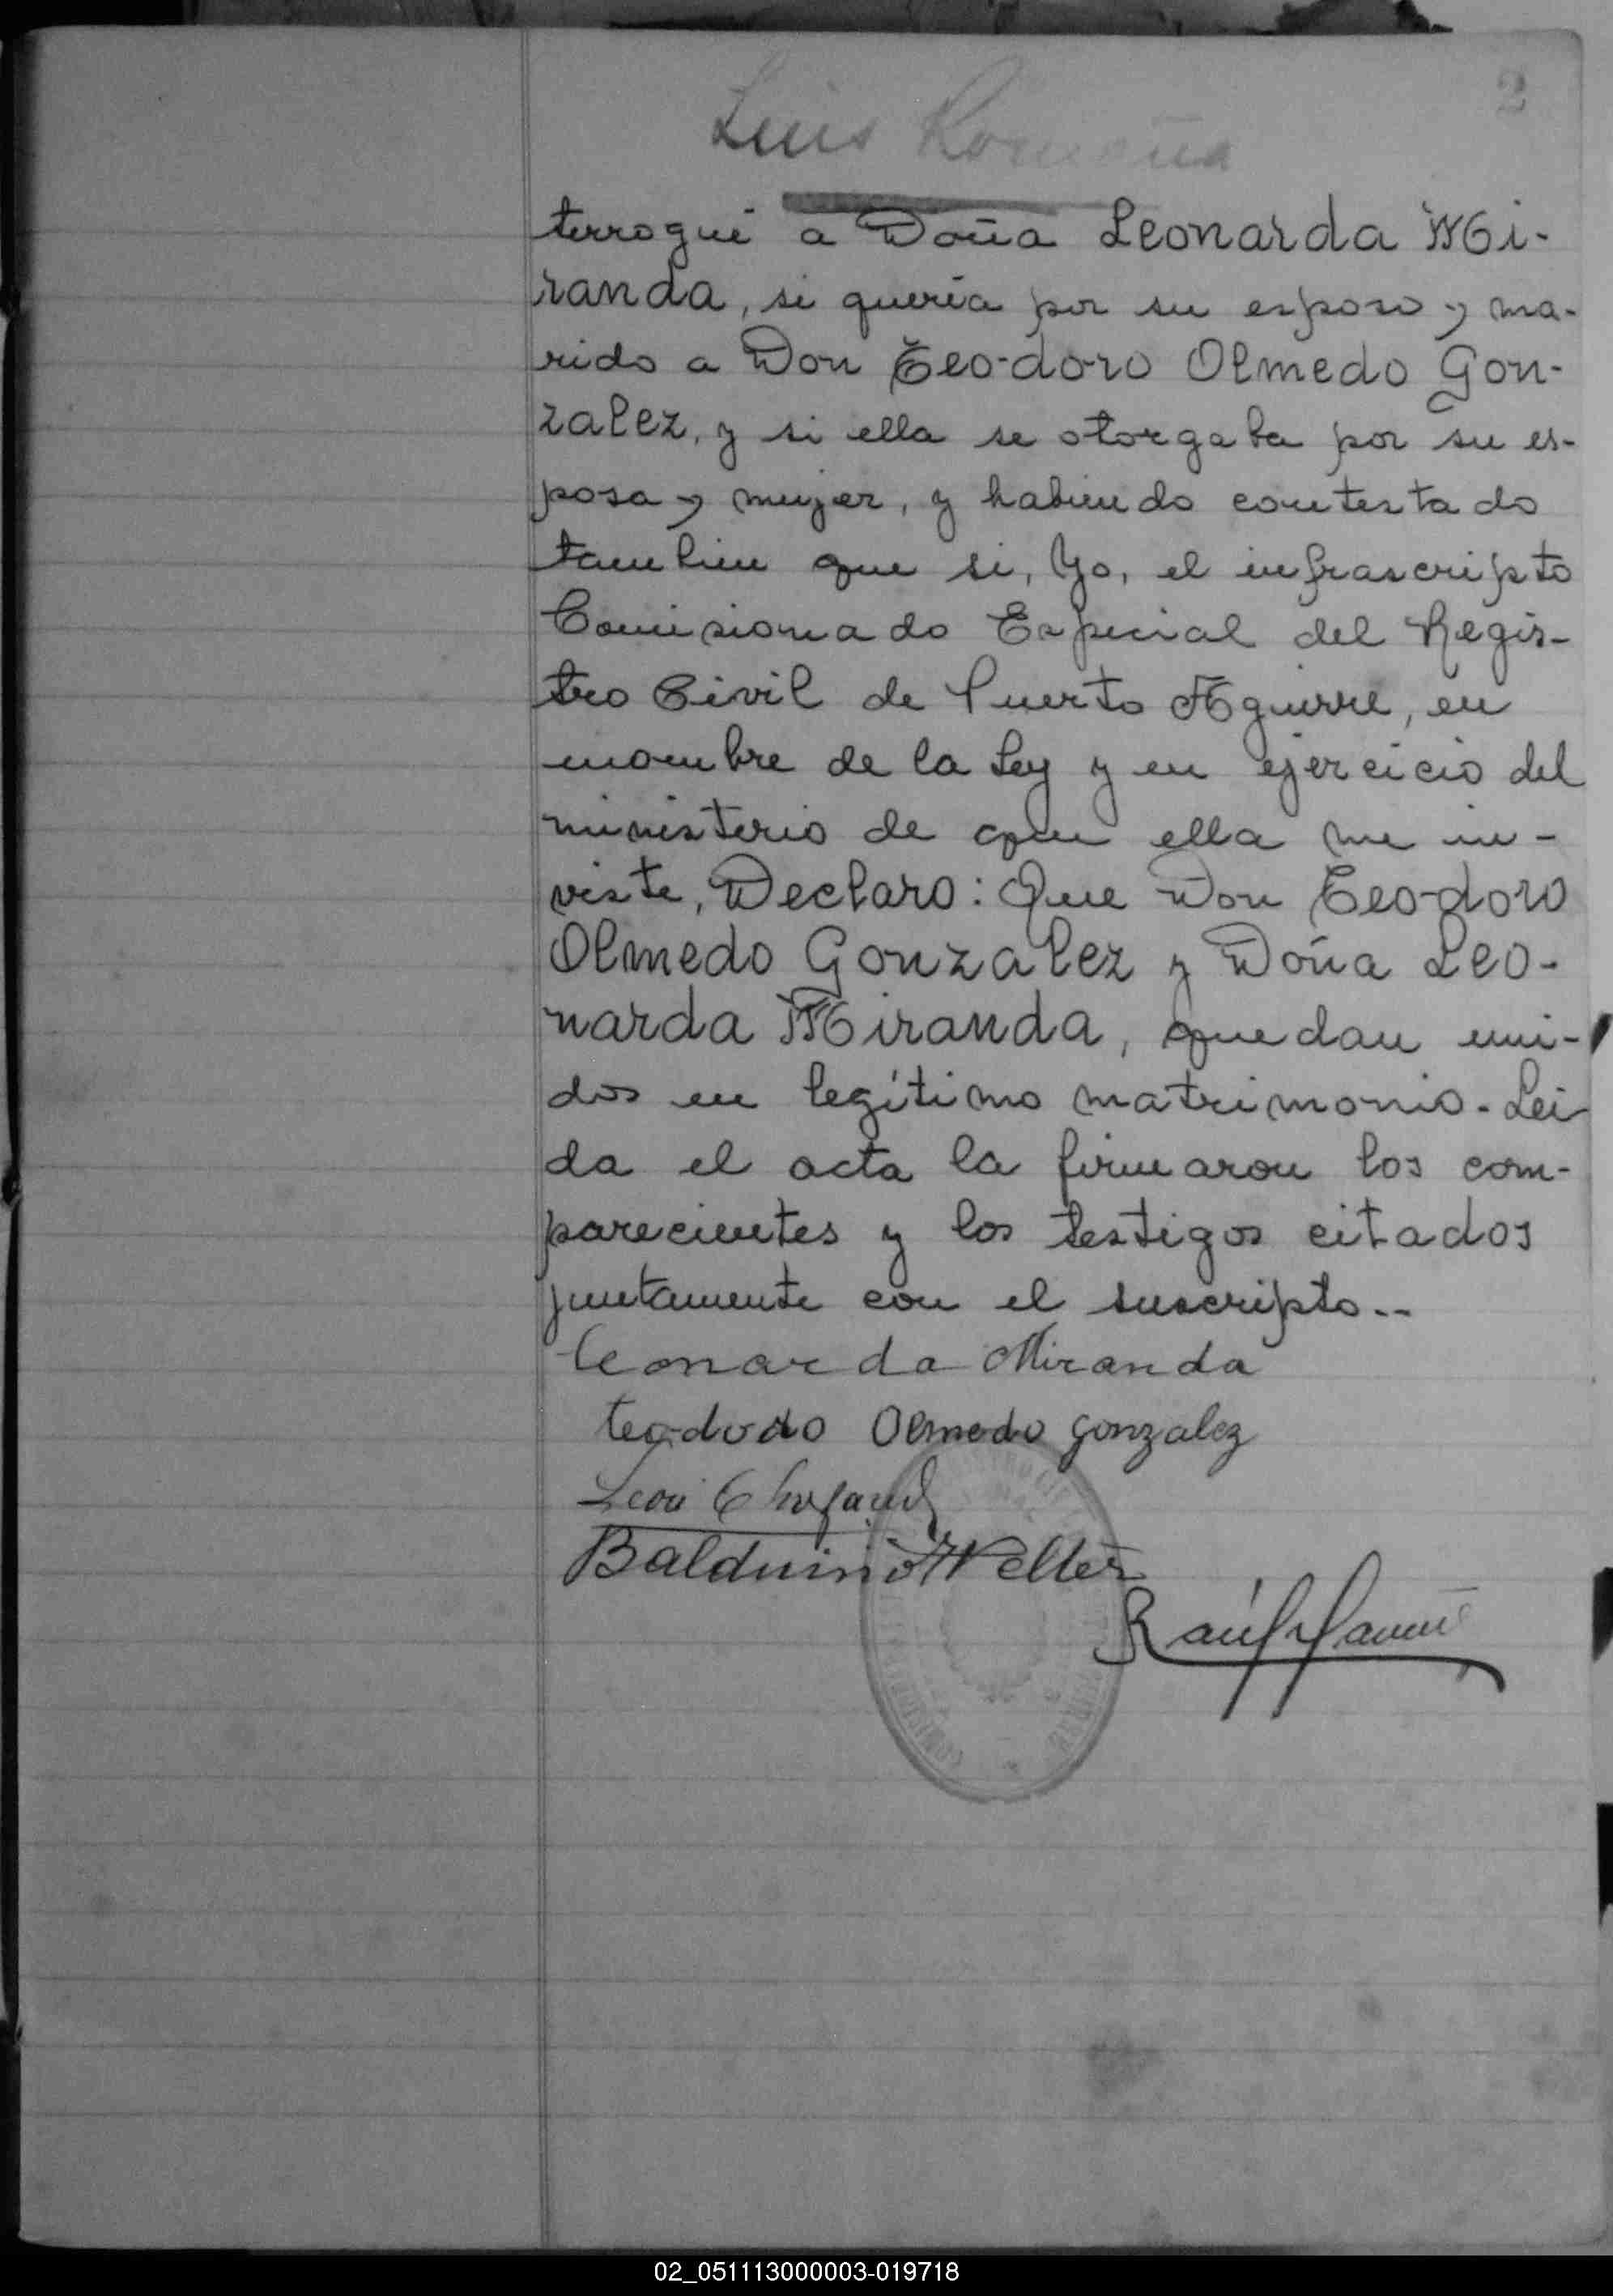 2
Luis Romaña
terrogué a Doña Leonarda Mi-
randa, si quería por su esposo y ma-
rido a Don Teodoro Olmedo Gon-
zalez, y si ella se otorgaba por su es-
posa y mujer, y habiendo contestado
tambien que si, Yo, el infrascripto
Comisionado Especial del Regis-
tro Civil de Puerto Aguirre, en
nombre de la Ley y en ejercicio del
ministerio de que ella me in-
viste, Declaro: Que Don Teodoro
Olmedo Gonzalez y Doña Leo-
narda Miranda, quedan uni-
dos en legítimo matrimonio. Lei
da el acta la firmaron los com-
parecientes y los testigos citados
juntamente con el suscripto..
leonarda Miranda
teododo Olmedo gonzalez
Leon
Balduino Welter
Raúl
02_051113000003-019718